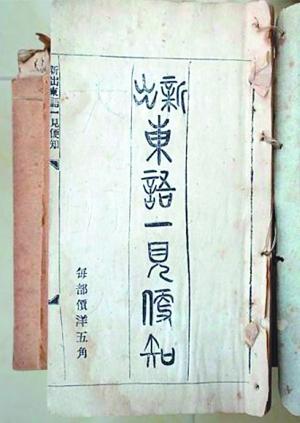 新出
東語一見便知
每部價洋五角
新出東語一見便知